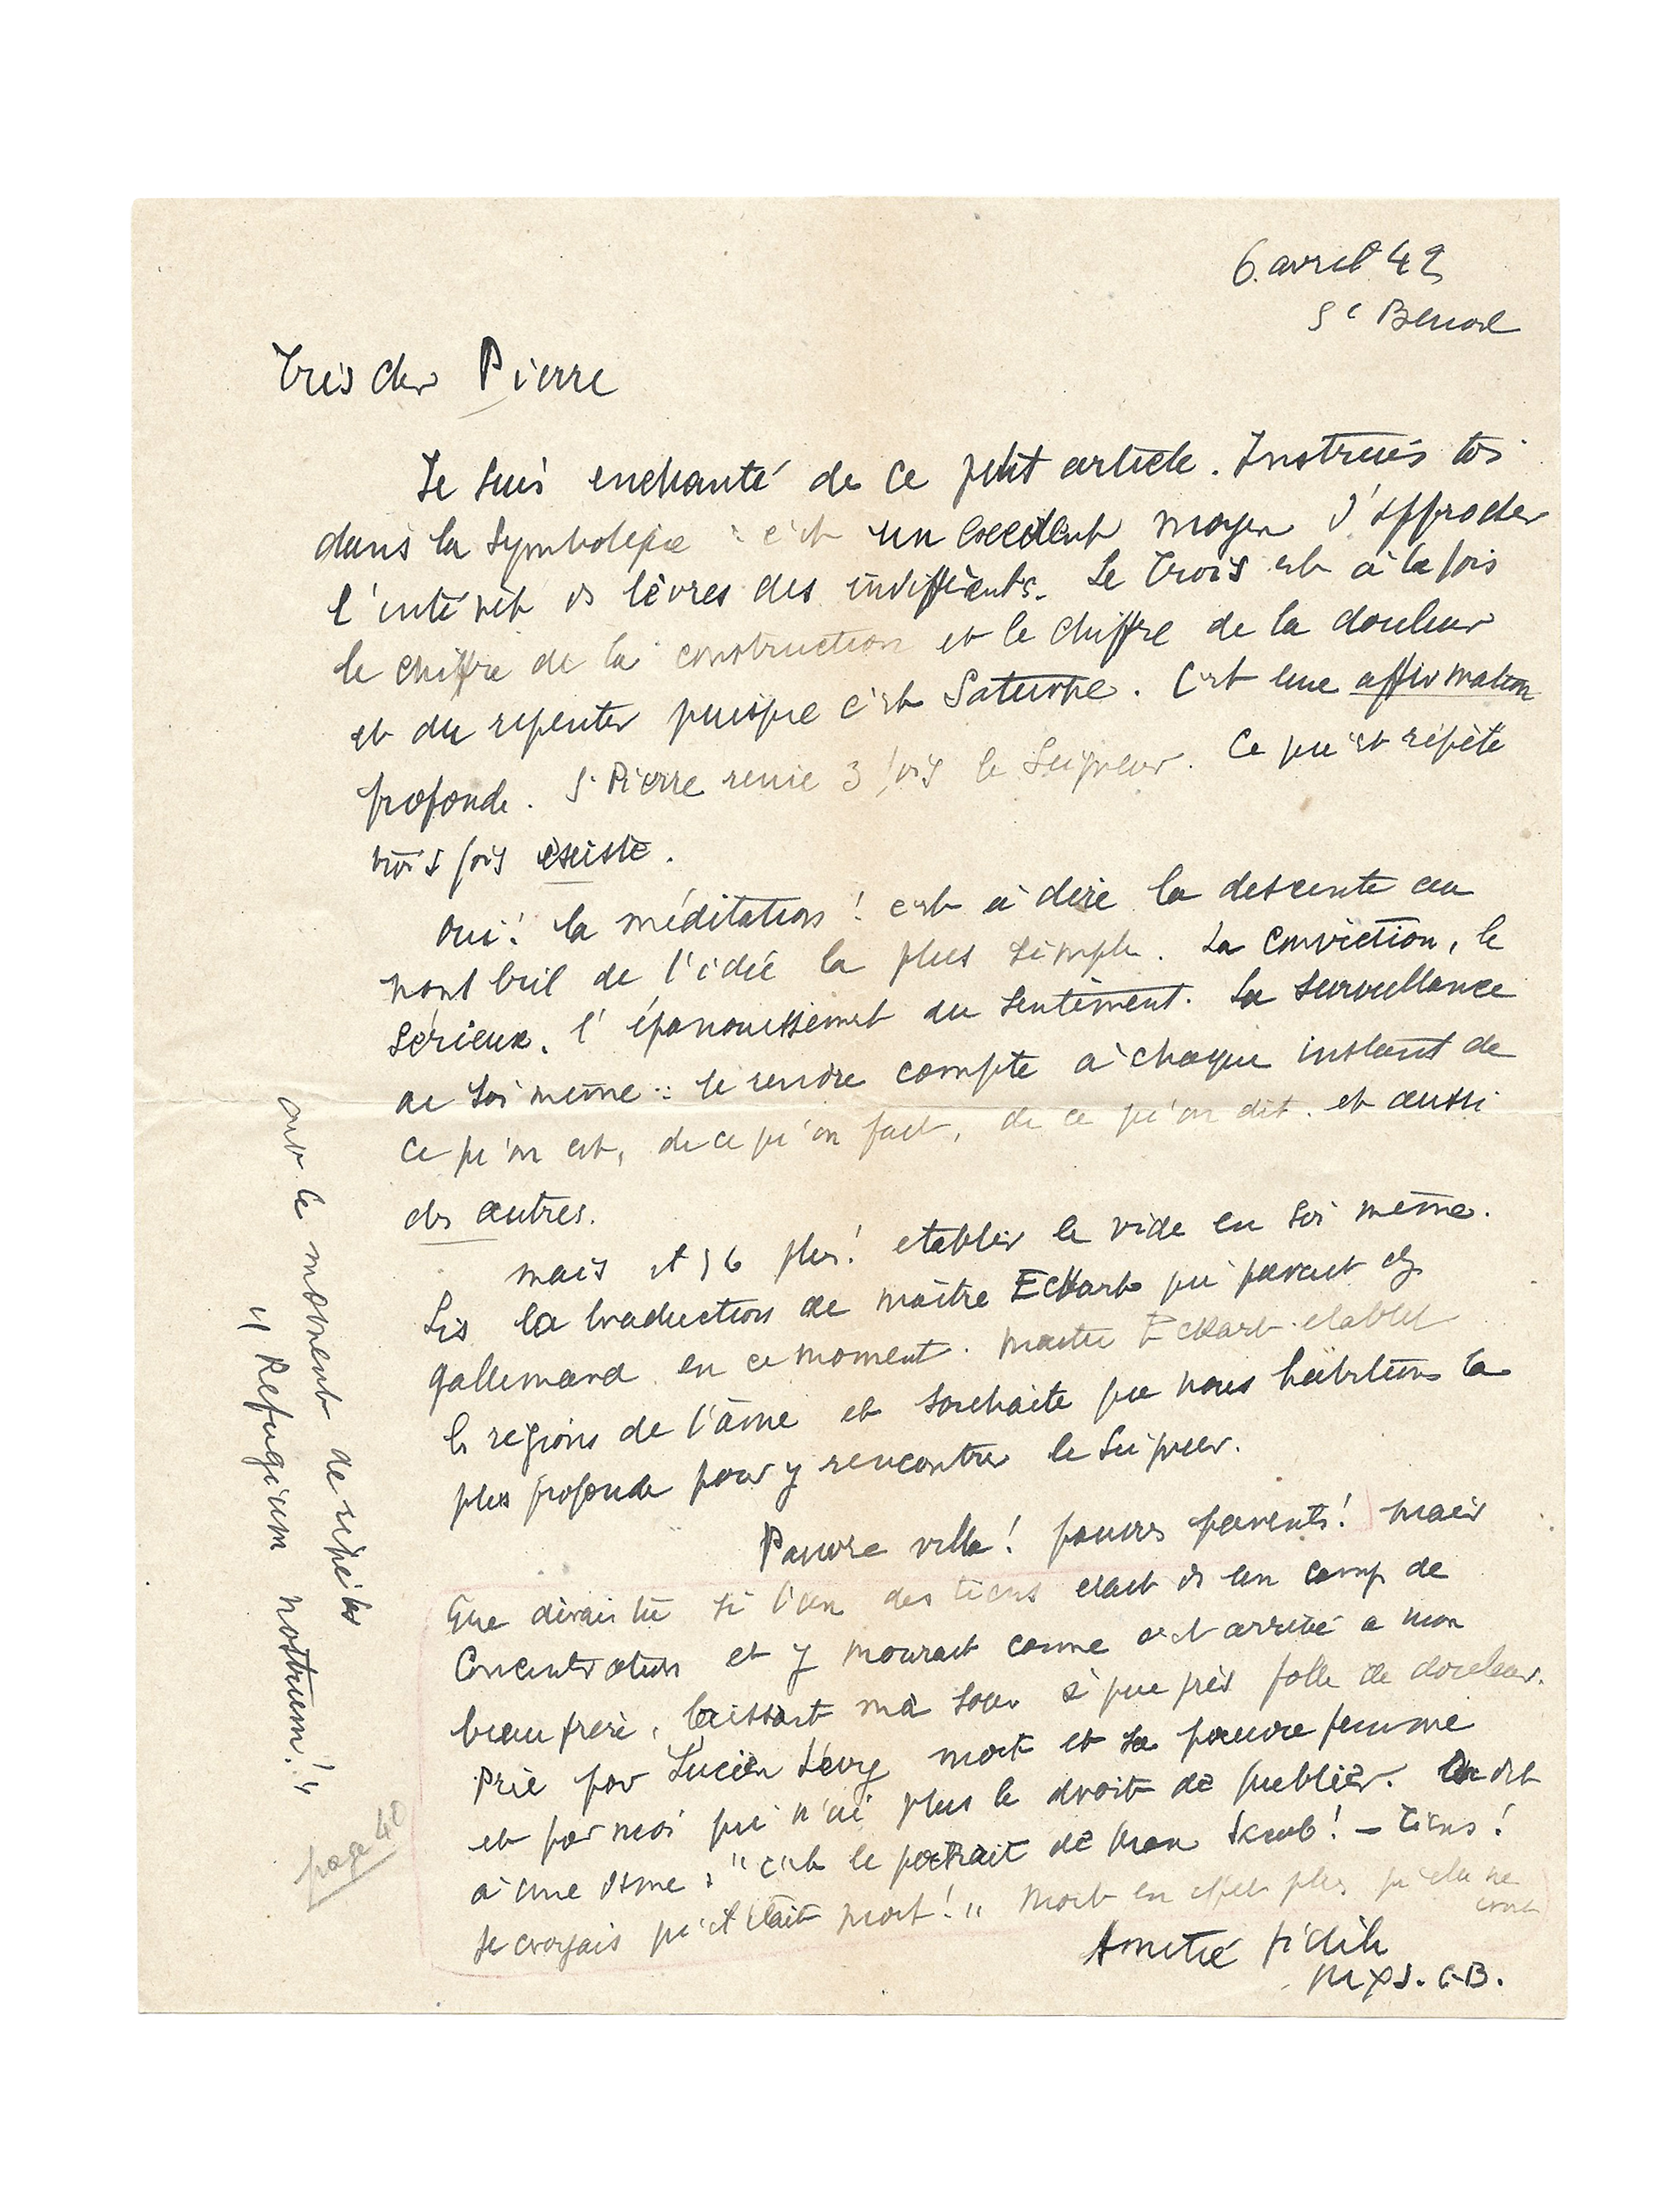 6. avril 42
St Benoit
Très cher Pierre
Je suis enchanté de ce petit article. Instruis toi
dans la symbolique : c'est un excellent moyen d'approcher
l'intérêt ds lèvres des indifférents. Le Trois est à la fois
le chiffre de la construction et le chiffre de la douleur
et du repentir puisque c'est Saturne. C'est une affirmation
profonde. St Pierre renie 3 fois le Seigneur. Ce qui est répété
trois fois existe.
Oui! la méditation! c'est à dire la descente au
nombril de l'idée la plus simple. La conviction, le
sérieux, l'épanouissement du sentiment. La surveillance
de soi même : se rendre compte à chaque instant de
ce qu'on est, de ce qu'on fait, de ce qu'on dit. et aussi
des autres.
mais plus! etablir le vide en soi même.
Lis la traduction de maître Eckart qui parait chez
gallimard en ce moment. Maitre Eckart etablit
ls régions de l'âme et souhaite que nous habitions la
plus profonde pour y rencontrer le Seigneur.
Pauvre ville! pauvres parents! mais
que dirais tu si l'un des tiens etait ds un camp de
Concentration et y mourait comme c'est arrivé a mon
beau frere, laissant ma soeur à peu près folle de douleur.
Prie pour Lucien Lévy mort et sa pauvre femme
et pour moi qui n'ai plus le droit de publier. On dit
à une dame : "c'est le portrait de Max Jacob! - Tiens!
je croyais qu'il était mort!" Mort en effet plus qu'elle ne
croit
Amitié fidèle
Max J. C-B.
c'est le moment de répéter
"Refugium nostrum!"
page 40